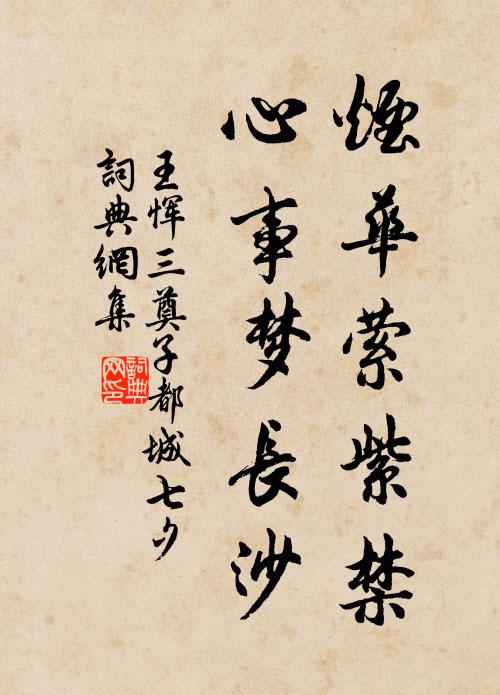 煙華縈紫禁
心事梦長沙
王惲三奠子都城七夕
詞典網集
詞典网印